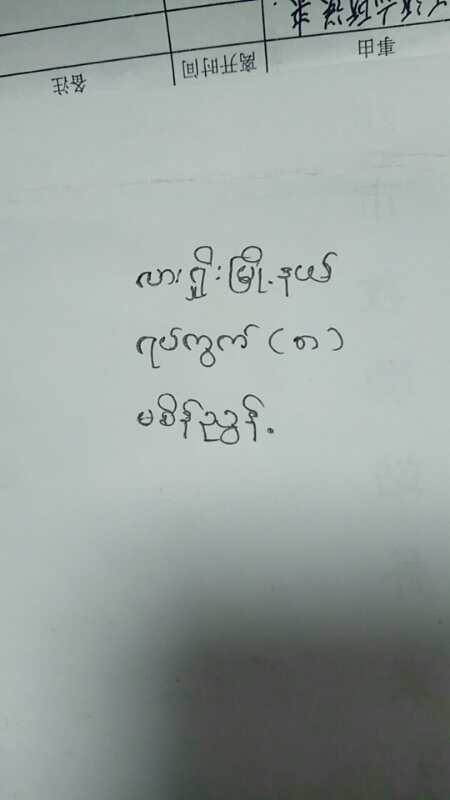 事由
离开时间
备注
လားရှိုးမြို့နယ်
ရပ်ကွက် (၈)
မစိန်ညွန့်